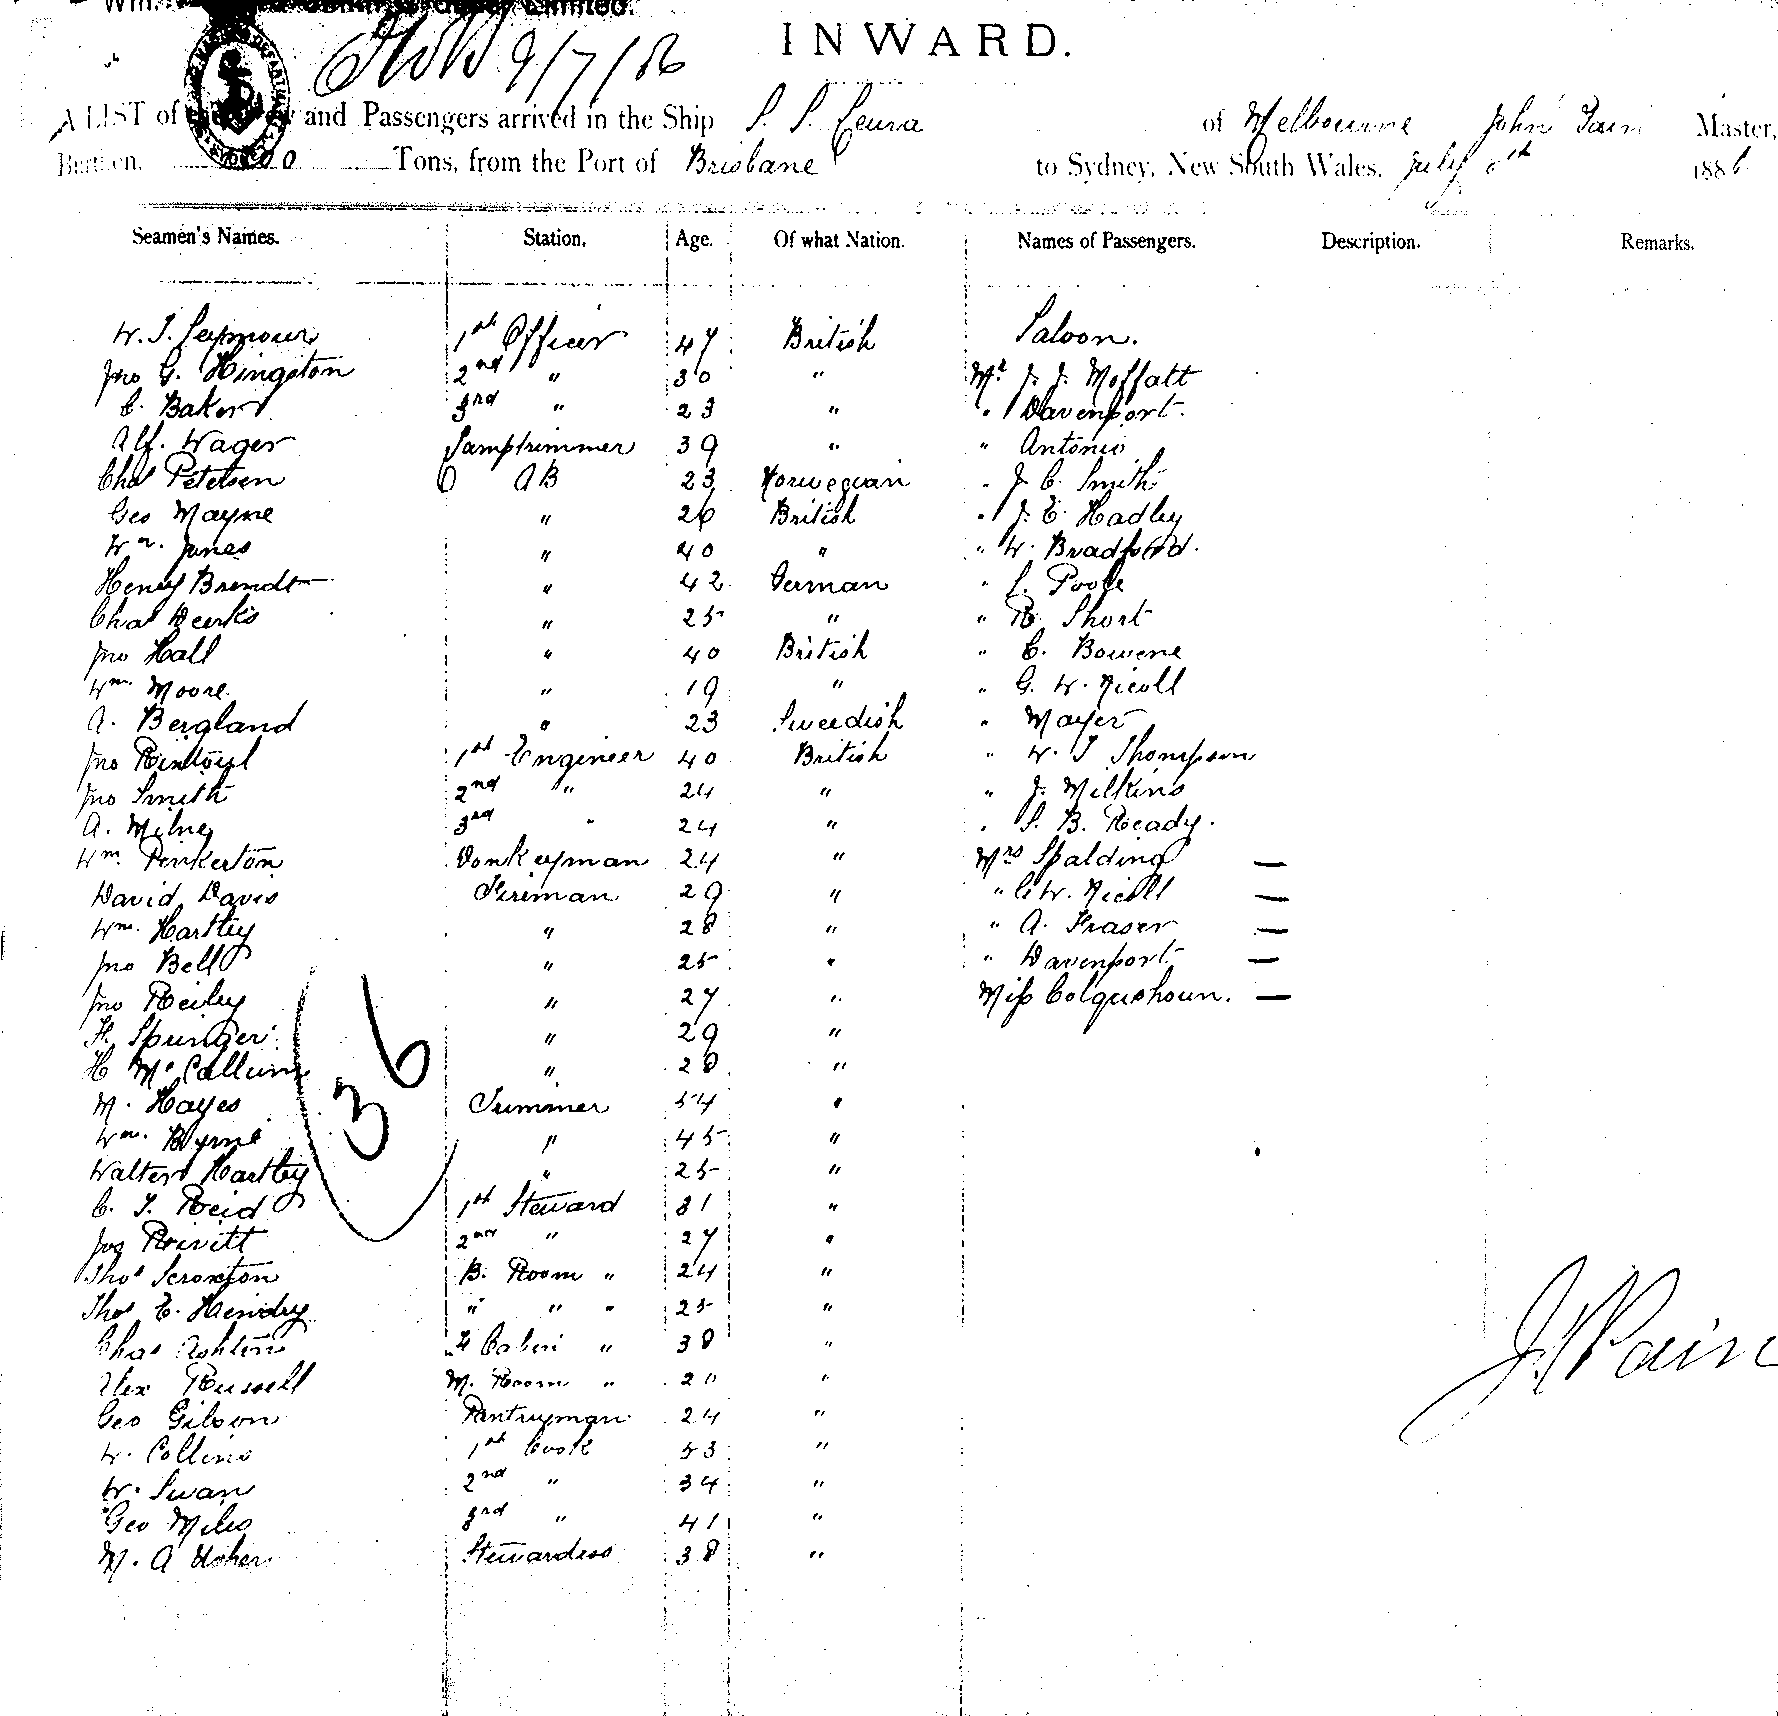 Limited.
9/7/86
INWARD.
A LIST of and Passengers arrived in the Ship S. S. Leura of Melbourne John Pain Master,
Burthen, Tons, from the Port of Brisbane to Sydney, New South Wales, July 8th 1886
Seamen's Names. Station. Age. Of what Nation. Names of Passengers. Description. Remarks.
W. J. Seymour 1st Officer 47 British Saloon.
Jno G. Hingston 2nd " 30 " Mr J. J. Moffatt
C. Baker 3rd " 23 " " Davenport.
Alf. Wager Lamptrimmer 39 " " Antonio
Chas Petersen AB 23 Norwegian " J. C. Smith
Geo Mayne " 26 British " J. E. Hadley
Wm. Jones " 40 " " W. Bradford.
Henry Brendt " 42 German " L. Poole
Chas Deerks " 25 " " R. Short
Jno Hall " 40 British " C. Bowene
Wm. Moore. " 19 " " G. W. Nicoll
A. Bergland " 23 Sweedish " Mayer
Jno Rintoul 1st Engineer 40 British " W. J Thompson
Jno Smith 2nd " 24 " " J. Wilkins
A. Milne 3rd " 24 " " S. B. Ready.
Wm. Pinkerton Donkeyman 24 " Mrs Spalding —
David Davis Fireman 29 " " G W. Nicoll —
Wm. Hartley " 28 " " A. Fraser —
Jno Bell " 25 " " Davenport —
Jno Reiley " 27 " Miss Colquohoun. —
H. Springer " 29 "
H McCallum " 28 "
M. Hayes Trimmer 54 "
36
Wm. Byrne " 45 "
Walter Hartley " 25 "
C. J. Reid 1st Steward 31 "
Jos Privitt 2nd " 27 "
Thos Scroxton B. Room " 24 "
Thos E. Hendry " " " 25 "
Chas Ashton F Cabin " 38 "
Alex Russell M. Room " 20 "
Geo Gibson Pantryman 24 "
W. Collins 1st Cook 53 "
W. Swan 2nd " 34 "
Geo Miles 3rd " 41 "
M. A Usher Stewardess 38 "
J Pain